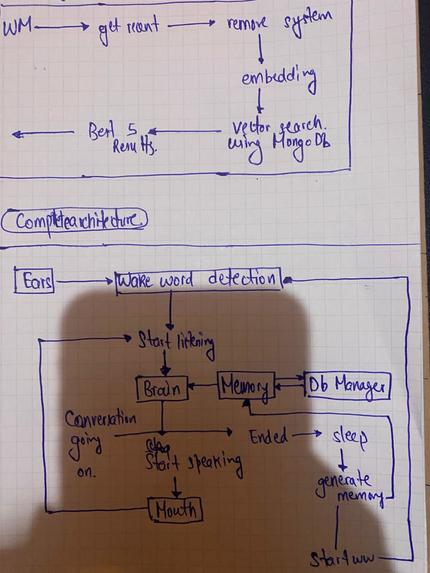 WM get recent remove system
embedding
Best 5 vector search
Results. using MongoDb
Complete architecture
Ears Wake word detection
Start listening
Brain Memory Db Manager
Conversation
going Ended sleep
on. Start speaking
generate
memory
Mouth
Start ww